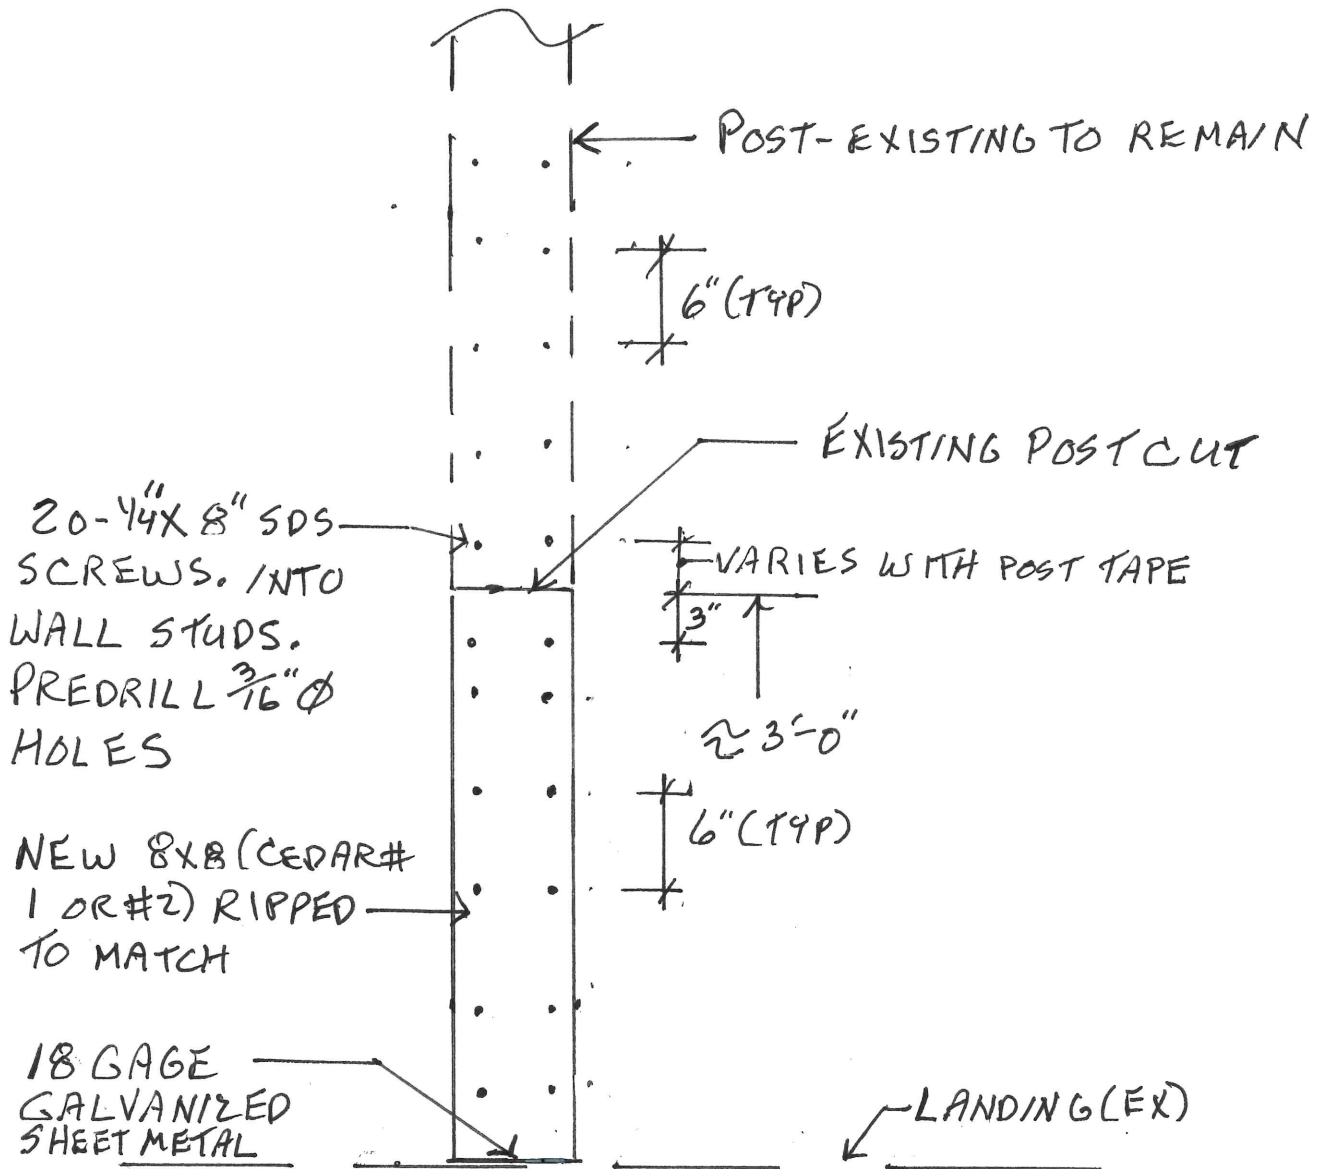 POST-EXISTING TO REMAIN
6" (TYP)
EXISTING POST CUT
20-1/4" X 8" SDS
SCREWS. INTO
WALL STUDS.
PREDRILL 3/16" Ø
HOLES
VARIES WITH POST TAPE
3"
≈ 3'-0"
6" (TYP)
NEW 8X8 (CEDAR#
1 OR #2) RIPPED
TO MATCH
18 GAGE
GALVANIZED
SHEET METAL
LANDING (EX)